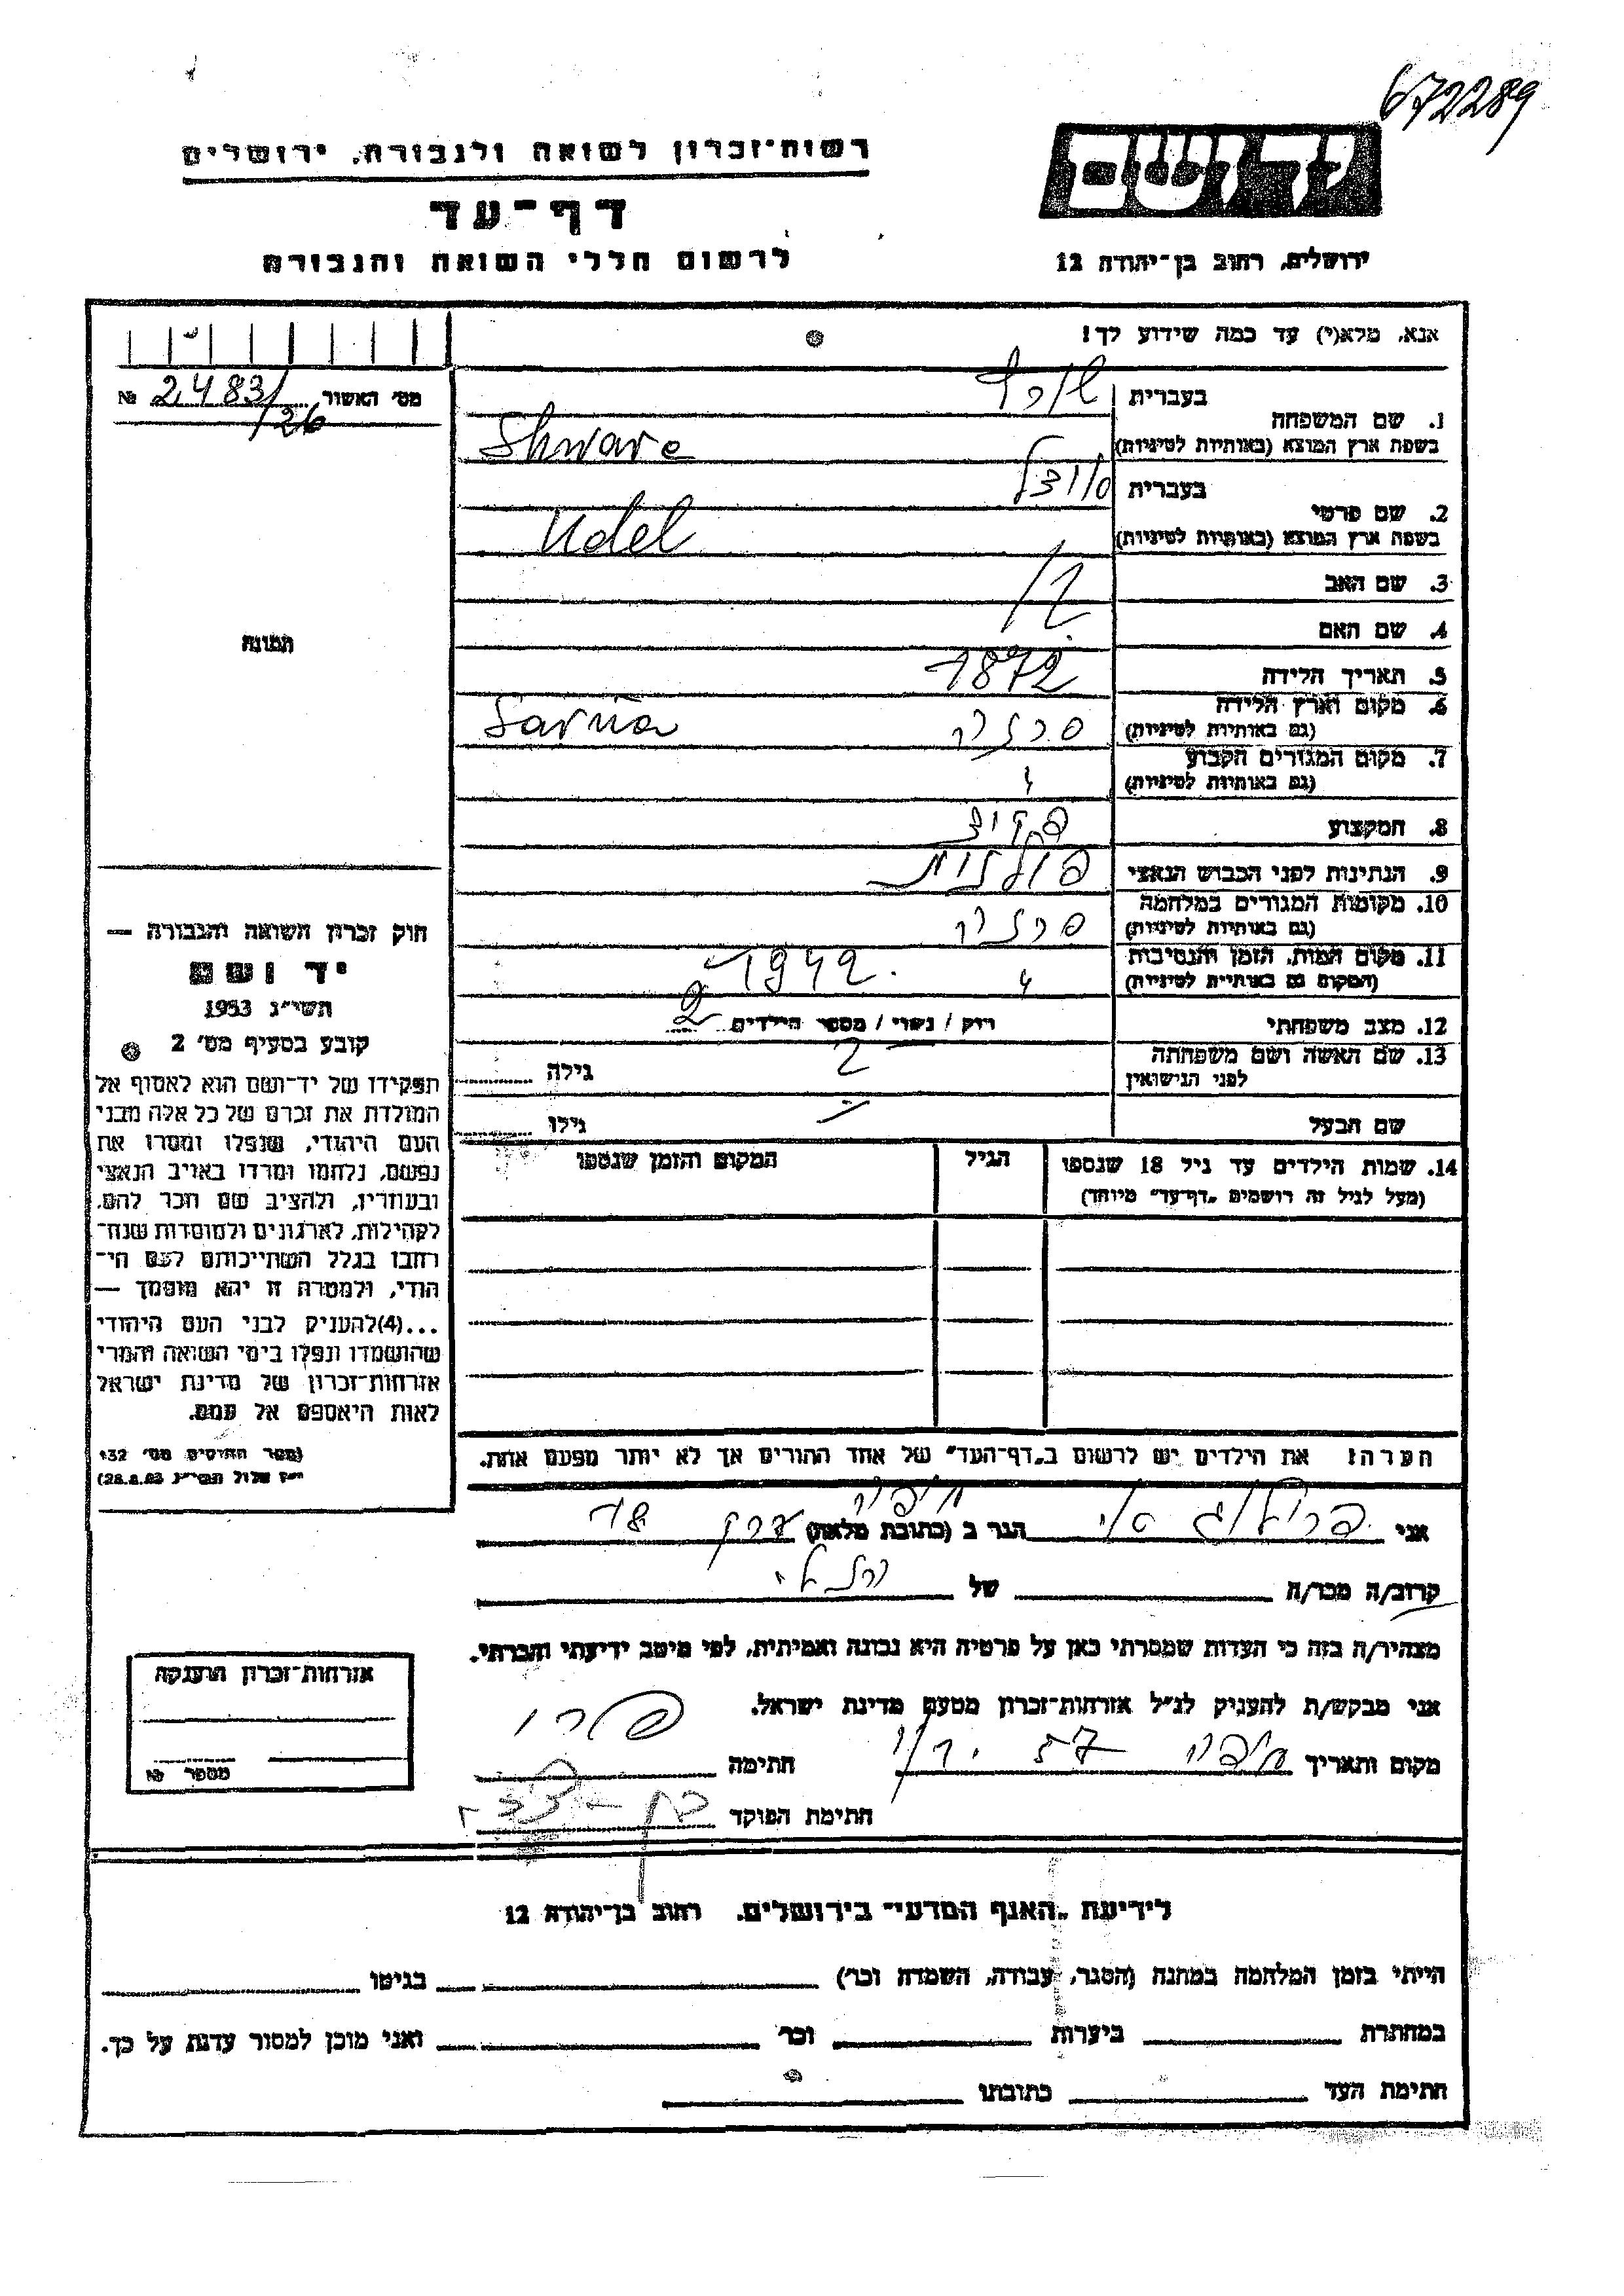 672289
יד ושם
רשות־זכרון לשואה ולגבורה, ירושלים
דף־עד
לרשום חללי השואה והגבורה
ירושלים, רחוב בן־יהודה 12
אנא, מלא(י) עד כמה שידוע לך!
מס׳ האשור 2483/ №
/26
1. שם המשפחה
בעברית
בשפת ארץ המוצא (באותיות לטיניות) Shwarc
2. שם פרטי
בעברית
בשפת ארץ המוצא (באותיות לטיניות) Udel
3. שם האב
4. שם האם
תמונה
5. תאריך הלידה 1872
6. מקום וארץ הלידה
(גם באותיות לטיניות) סרנה Sarna
7. מקום המגורים הקבוע
(גם באותיות לטיניות) "
8. המקצוע
9. הנתינות לפני הכבוש הנאצי פולנית
10. מקומות המגורים במלחמה
(גם באותיות לטיניות) סרנה
11. מקום המות, הזמן והנסיבות
(המקום גם באותיות לטיניות) " 1942.
12. מצב משפחתי רוק / נשוי / מספר הילדים 2
13. שם האשה ושם משפחתה
לפני הנישואין גילה
שם הבעל גילו
14. שמות הילדים עד גיל 18 שנספו
(מעל לגיל זה רושמים „דף־עד״ מיוחד)
הגיל
המקום והזמן שנספו
הערה: את הילדים יש לרשום ב„דף־העד״ של אחד ההורים אך לא יותר מפעם אחת.
חוק זכרון השואה והגבורה —
יד ושם
תשי״ג 1953
קובע בסעיף מס׳ 2
תפקידו של יד־ושם הוא לאסוף אל
המולדת את זכרם של כל אלה מבני
העם היהודי, שנפלו ומסרו את
נפשם, נלחמו ומרדו באויב הנאצי
ובעוזריו, ולהציב שם וזכר להם,
לקהילות, לארגונים ולמוסדות שנח־
רבו בגלל השתייכותם לעם הי־
הודי, ולמטרה זו יהא מוסמך —
...(4) להעניק לבני העם היהודי
שהושמדו ונפלו בימי השואה והמרי
אזרחות־זכרון של מדינת ישראל
לאות היאספם אל עמם.
(ספר החוקים מס׳ 132
י״ז אלול תשי״ג 28.8.53)
אני הגר ב (כתובת מלאה) חיפה
קרוב/ה מכר/ה של
מצהיר/ה בזה כי העדות שמסרתי כאן על פרטיה היא נכונה ואמיתית, לפי מיטב ידיעתי והכרתי.
אני מבקש/ת להעניק לנ״ל אזרחות־זכרון מטעם מדינת ישראל.
מקום ותאריך חיפה חתימה
חתימת הפוקד
אזרחות־זכרון הוענקה
מספר №
לידיעת „האגף המדעי״ בירושלים, רחוב בן־יהודה 12
הייתי בזמן המלחמה במחנה (הסגר, עבודה, השמדה וכו׳) בגיטו
במחתרת ביערות וכו׳ ואני מוכן למסור עדות על כך.
חתימת העד כתובתו